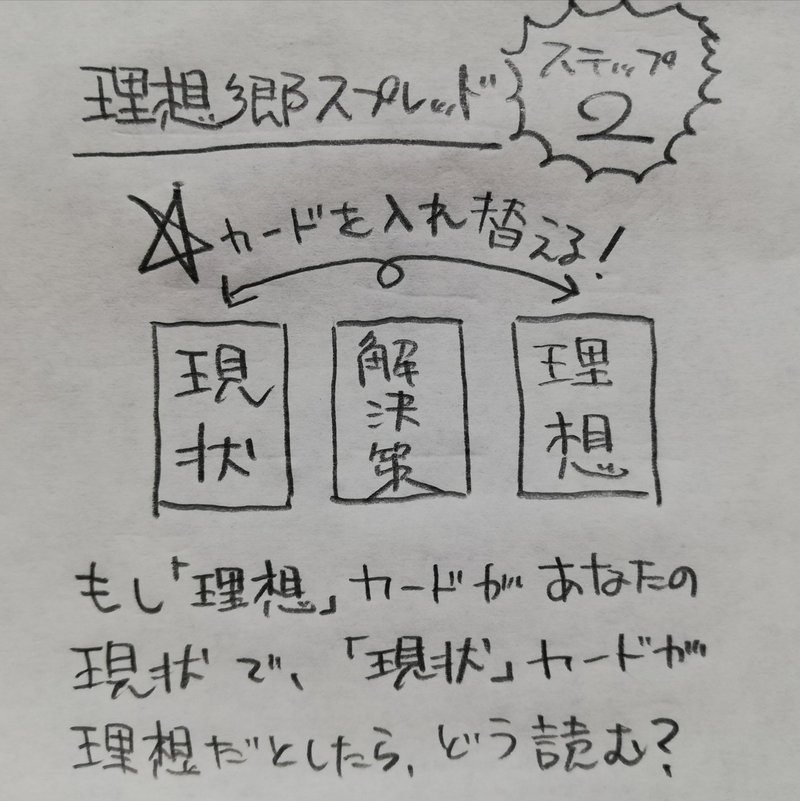 理想郷スプレッド
ステップ
2
☆カードを入れ替える!
現状
解決策
理想
もし「理想」カードがあなたの
現状で、「現状」カードが
理想だとしたら、どう読む?